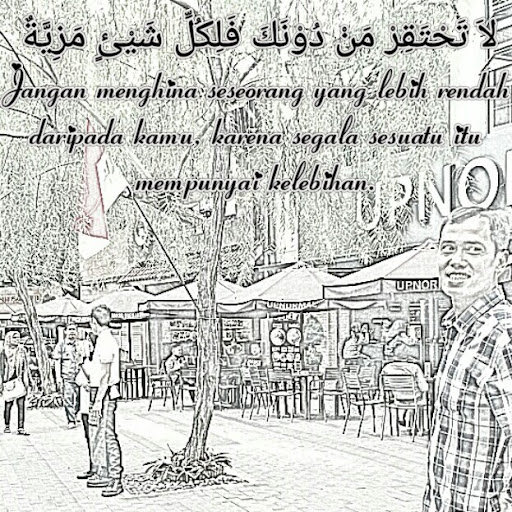 لاَ تَحْتَقِرْ مَنْ دُوْنَكَ فَلِكُلِّ شَيْئٍ مَزِيَّةٌ
Jangan menghina seseorang yang lebih rendah
daripada kamu, karena segala sesuatu itu
mempunyai kelebihan.
UPNO
UPNOR
UPNORMAL